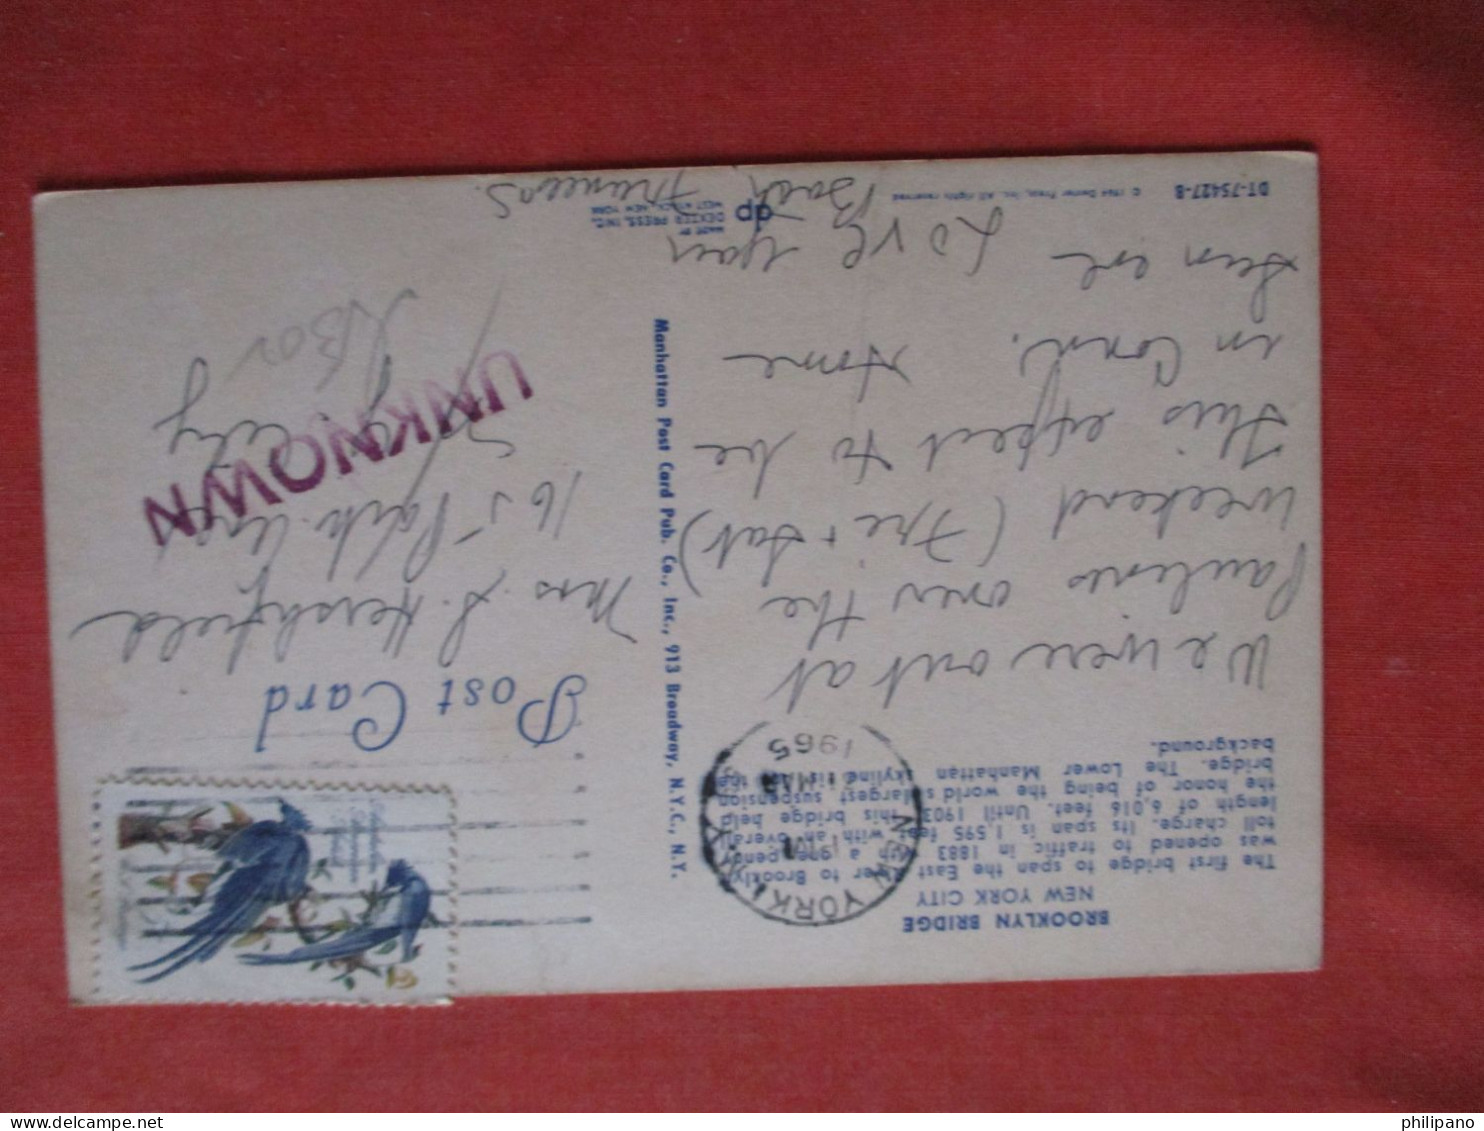 BROOKLYN BRIDGE
NEW YORK CITY
The first bridge to span the East River to Brooklyn
was opened to traffic in 1883 after a one penny
toll charge. Its span is 1,595 feet with an overall
length of 6,016 feet. Until 1903 this bridge held
the honor of being the world's largest suspension
bridge. The Lower Manhattan skyline is in the
background.
NEW YORK, N.Y.
PM
MAR
1965
We were out at
Paulines over the
Weekend (Fri + Sat)
This expect to be
in Conn. Home
Sun eve
Love your
Frances.
DT-75427-B
© 1964 Dexter Press, Inc. All rights reserved
dp
MADE BY
DEXTER PRESS, INC.
WEST NYACK, NEW YORK
Manhattan Post Card Pub. Co., Inc., 913 Broadway, N.Y.C., N.Y.
Post Card
Mrs. S. Hershfield
165 Park
City
UNKNOWN
philipano